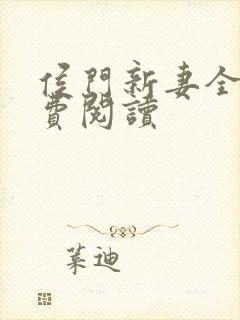 侯門新妻全
費閱讀
葉迪